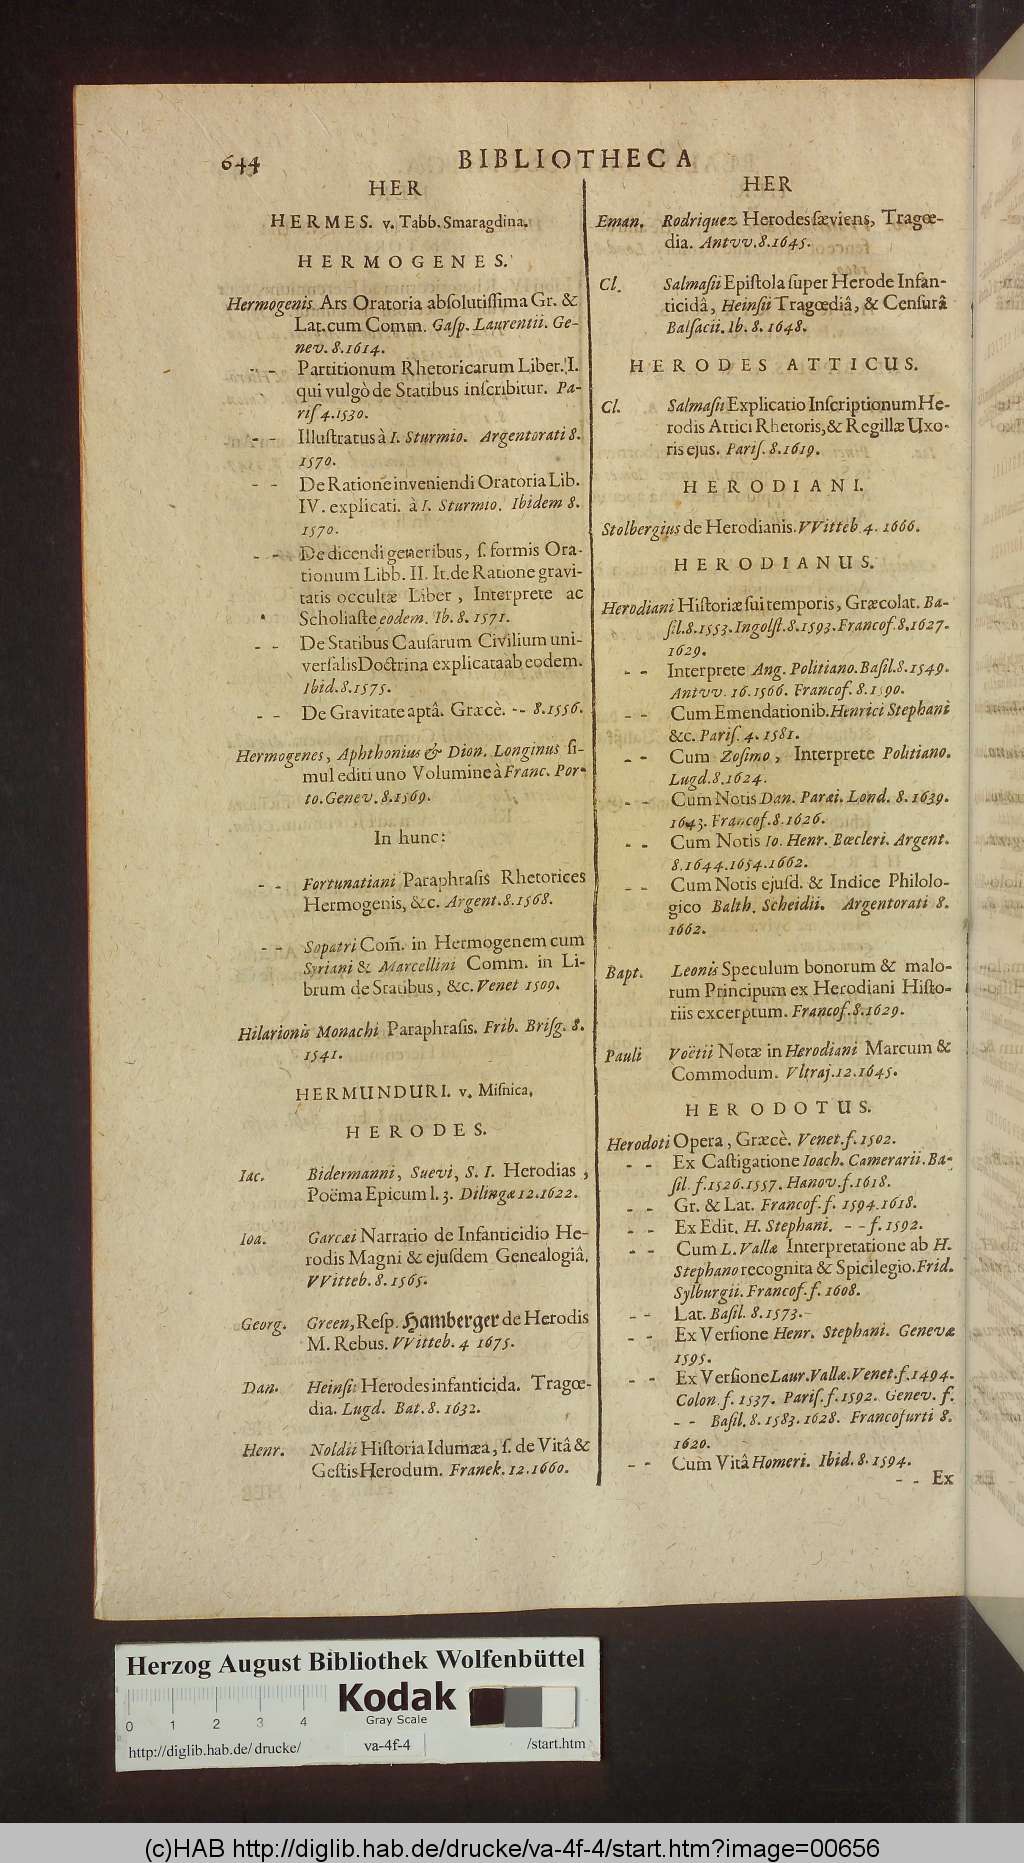 644
BIBLIOTHECA
HER
HERMES. v. Tabb. Smaragdina.
HERMOGENES.
Hermogenis Ars Oratoria absolutissima Gr. &
Lat. cum Comm. Gasp. Laurentii. Ge-
nev. 8. 1614.
- - Partitionum Rhetoricarum Liber. I.
qui vulgò de Statibus inscribitur. Pa-
ris 4. 1530.
- - Illustratus à I. Sturmio. Argentorati 8.
1570.
- - De Ratione inveniendi Oratoria Lib.
IV. explicati. à I. Sturmio. Ibidem 8.
1570.
- - De dicendi generibus, s. formis Ora-
tionum Libb. II. It. de Ratione gravi-
tatis occultæ Liber, Interprete ac
Scholiaste eodem. Ib. 8. 1571.
- - De Statibus Causarum Civilium uni-
versalis Doctrina explicata ab eodem.
Ibid. 8. 1575.
- - De Gravitate aptâ. Græcè. -- 8. 1556.
Hermogenes, Aphthonius & Dion. Longinus si-
mul editi uno Volumine à Franc. Por-
to. Genev. 8. 1569.
In hunc:
- - Fortunatiani Paraphrasis Rhetorices
Hermogenis, &c. Argent. 8. 1568.
- - Sopatri Com̃. in Hermogenem cum
Syriani & Marcellini Comm. in Li-
brum de Statibus, &c. Venet 1509.
Hilarionis Monachi Paraphrasis. Frib. Brisg. 8.
1541.
HERMUNDURI. v. Misnica.
HERODES.
Iac. Bidermanni, Suevi, S. I. Herodias,
Poëma Epicum l. 3. Dilingæ 12. 1622.
Ioa. Garcæi Narratio de Infanticidio He-
rodis Magni & ejusdem Genealogiâ.
VVitteb. 8. 1565.
Georg. Green, Resp. Hamberger de Herodis
M. Rebus. VVitteb. 4 1675.
Dan. Heinsii Herodes infanticida. Tragœ-
dia. Lugd. Bat. 8. 1632.
Henr. Noldii Historia Idumæa, s. de Vitâ &
Gestis Herodum. Franek. 12. 1660.
HER
Eman. Rodriquez Herodes sæviens, Tragœ-
dia. Antvv. 8. 1645.
Cl. Salmasii Epistola super Herode Infan-
ticidâ, Heinsii Tragœdiâ, & Censurâ
Balsacii. Ib. 8. 1648.
HERODES ATTICUS.
Cl. Salmasii Explicatio Inscriptionum He-
rodis Attici Rhetoris, & Regillæ Uxo-
ris ejus. Paris. 8. 1619.
HERODIANI.
Stolbergius de Herodianis. VVitteb 4. 1666.
HERODIANUS.
Herodiani Historiæ sui temporis, Græcolat. Ba-
sil. 8. 1553. Ingolst. 8. 1593. Francof. 8. 1627.
1629.
- - Interprete Ang. Politiano. Basil. 8. 1549.
Antvv. 16. 1566. Francof. 8. 1590.
- - Cum Emendationib. Henrici Stephani
&c. Paris. 4. 1581.
- - Cum Zosimo, Interprete Politiano.
Lugd. 8. 1624.
- - Cum Notis Dan. Paræi. Lond. 8. 1639.
1643. Francof. 8. 1626.
- - Cum Notis Io. Henr. Bœcleri. Argent.
8. 1644. 1654. 1662.
- - Cum Notis ejusd. & Indice Philolo-
gico Balth. Scheidii. Argentorati 8.
1662.
Bapt. Leonis Speculum bonorum & malo-
rum Principum ex Herodiani Histo-
riis excerptum. Francof. 8. 1629.
Pauli Voëtii Notæ in Herodiani Marcum &
Commodum. Vltraj. 12. 1645.
HERODOTUS.
Herodoti Opera, Græcè. Venet. f. 1502.
- - Ex Castigatione Ioach. Camerarii. Ba-
sil. f. 1526. 1557. Hanov. f. 1618.
- - Gr. & Lat. Francof. f. 1594. 1618.
- - Ex Edit. H. Stephani. - - f. 1592.
- - Cum L. Vallæ Interpretatione ab H.
Stephano recognita & Spicilegio. Frid.
Sylburgii. Francof. f. 1608.
- - Lat. Basil. 8. 1573.
- - Ex Versione Henr. Stephani. Genevæ
1595.
- - Ex Versione Laur. Vallæ. Venet. f. 1494.
Colon. f. 1537. Paris. f. 1592. Genev. f.
- - Basil. 8. 1583. 1628. Francofurti 8.
1620.
- - Cum Vitâ Homeri. Ibid. 8. 1594.
- - Ex
Herzog August Bibliothek Wolfenbüttel
Kodak
Gray Scale
0 1 2 3 4
http://diglib.hab.de/drucke/ va-4f-4 /start.htm
(c)HAB http://diglib.hab.de/drucke/va-4f-4/start.htm?image=00656